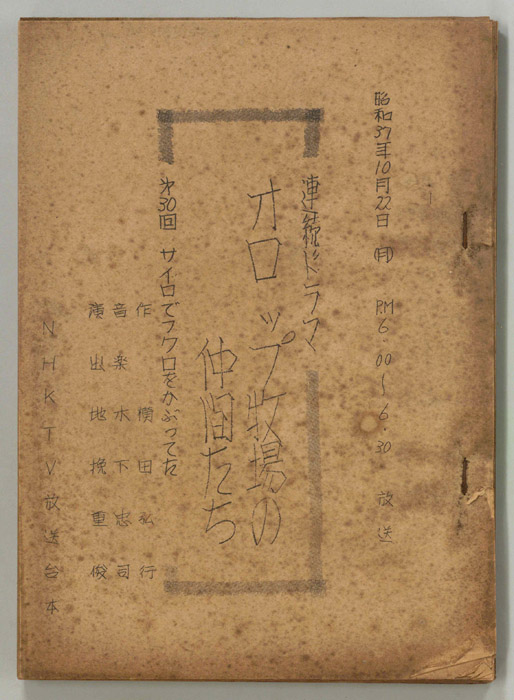 昭和37年10月22日(月) P.M 6.00〜6.30 放送
連続ドラマ
オロップ牧場の
仲間たち
第30回 サイロでフクロをかぶってた
作 横田弘行
音楽 木下忠司
演出 地挽重俊
NHKTV放送台本